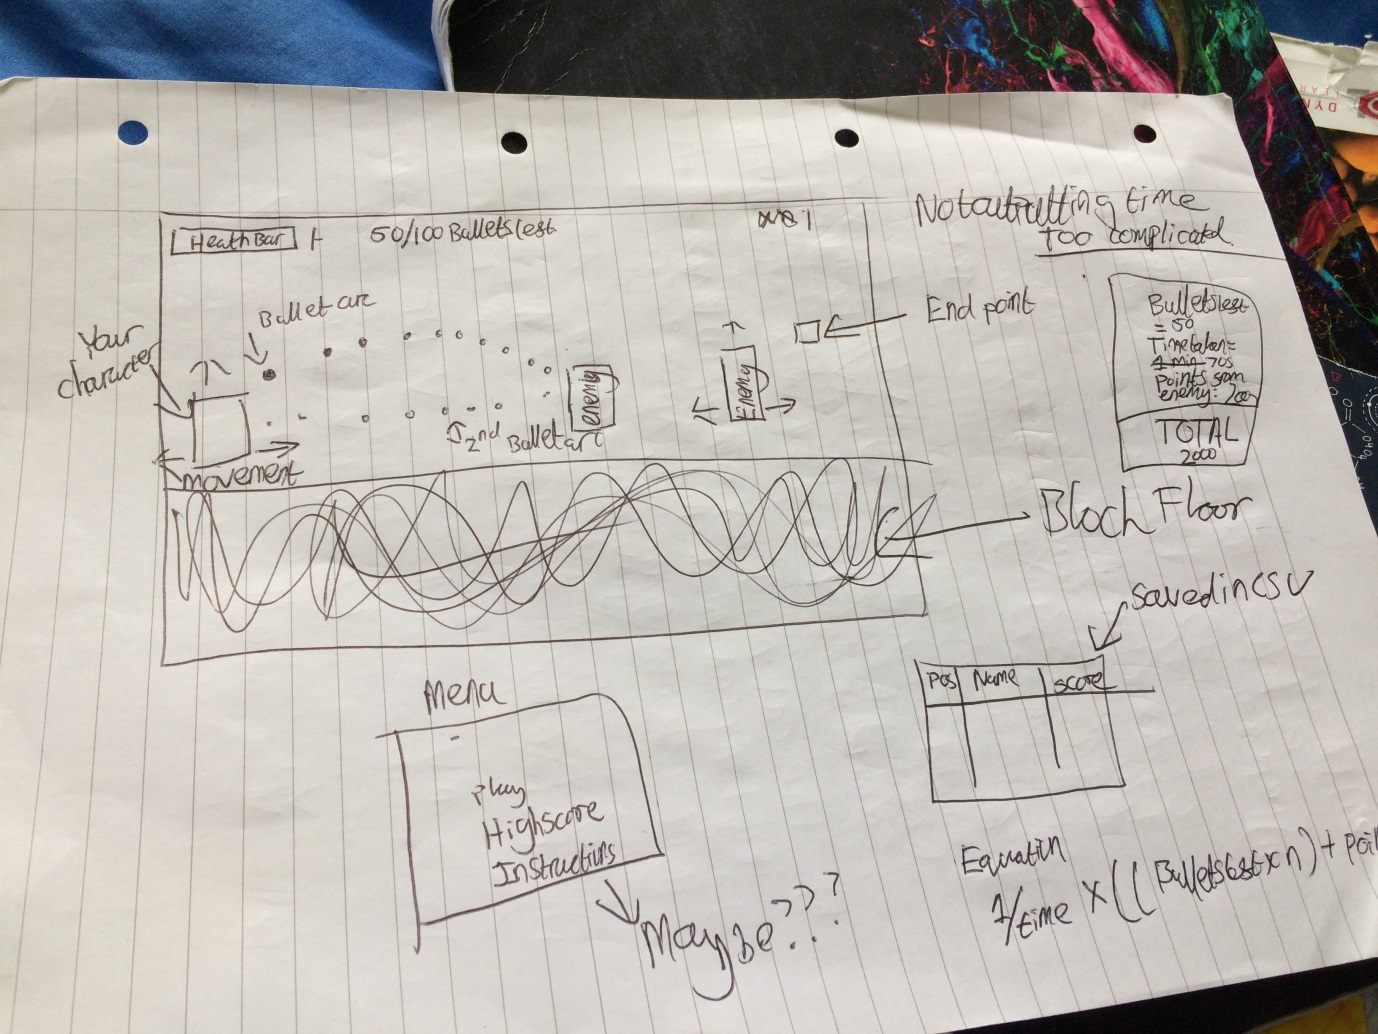 Heath Bar
50/100 Bullets lest
Not
ting time
Too complicatd
Your
character
Bullet arc
End point
enemy
Enemy
2nd Bullet arc
movement
Bullets lest
= 50
Time taken=
1 min 70s
Points from
enemy: 200
TOTAL
2000
Block Floor
Saved in CSV
Pos Name score
Menu
Play
Highscore
Instructions
Maybe???
Equation
1/time × ((Bullets lest × n) + poi
DYN